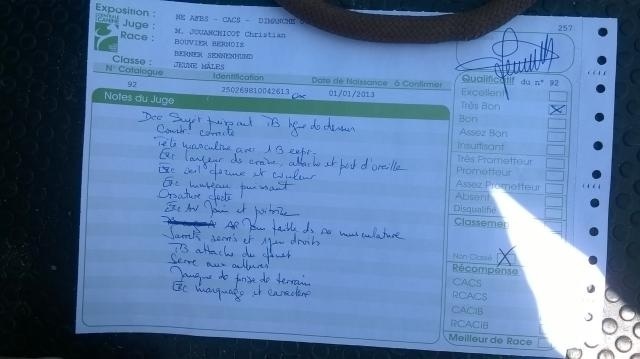 Exposition : NE AFBS - CACS - DIMANCHE
Juge : M. JOUANCHICOT Christian
Race : BOUVIER BERNOIS
BERNER SENNENHUND
Classe : JEUNE MALES
257
N° Catalogue Identification Date de Naissance à Confirmer
92 250269810042613 01/01/2013
Notes du Juge
Sujet puissant TB ligne de dessus
Constr. correcte
Tête masculine avec TB expr.
Exc largeur de crane, attache et port d'oreille
Exc oeil forme et couleur
Exc museau puissant
Ossature forte
Exc AV main et poitrine
AR faible ds sa musculature
Jarrets serrés et 1 peu droits
TB attache du fouet
Serre aux allures
Manque de prise de terrain
Exc marquage et caractère
Qualificatif du n° 92
Excellent
Très Bon X
Bon
Assez Bon
Insuffisant
Très Prometteur
Prometteur
Assez Prometteur
Absent
Disqualifié
Classement
Non Classé X
Récompense
CACS
RCACS
CACIB
RCACIB
Meilleur de Race